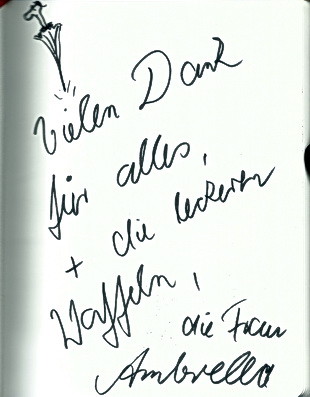 Vielen Dank
für alles,
+ die leckeren
Waffeln,
die Frau
Ambrella